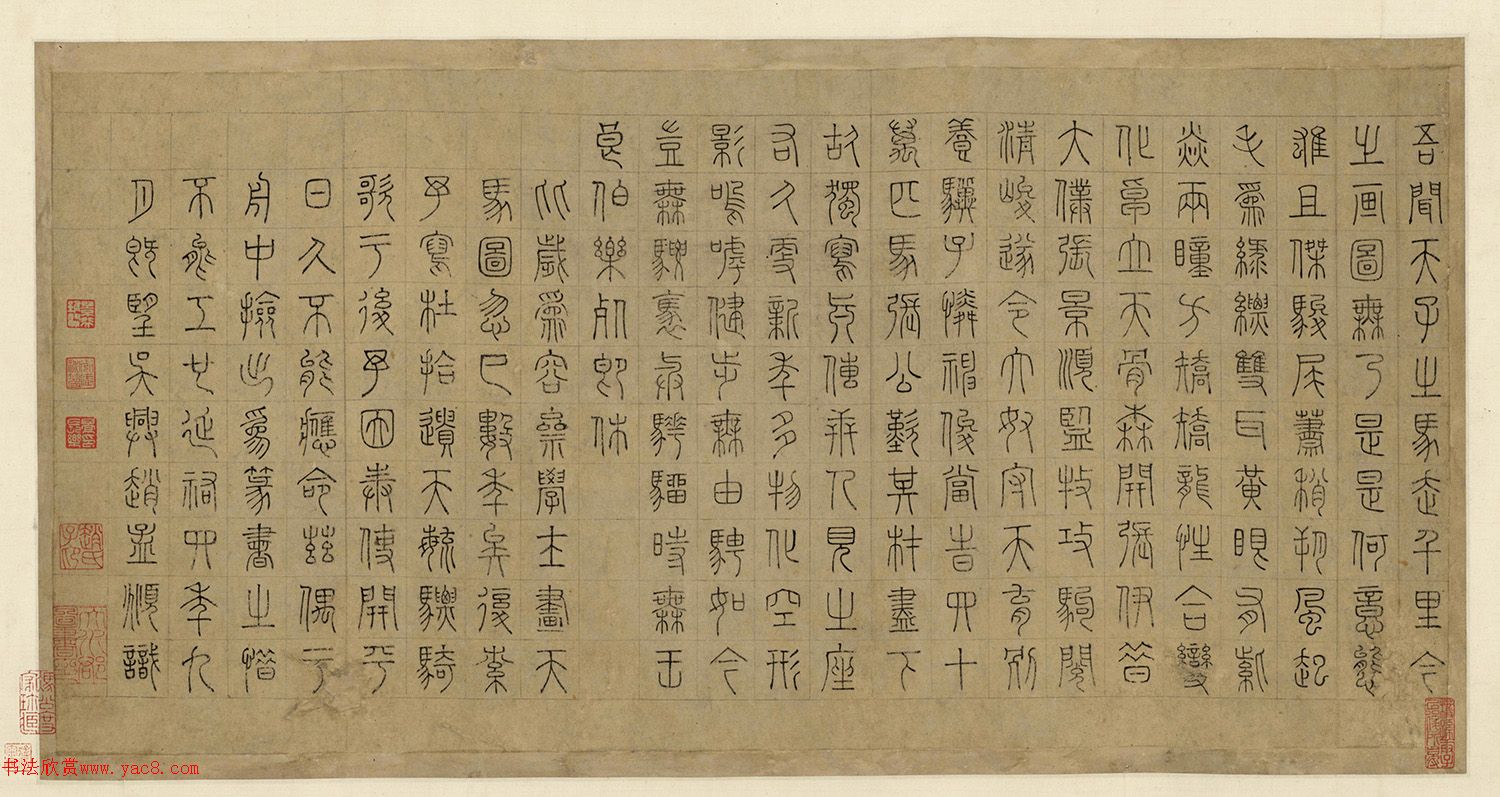 吾聞天子之馬走千里今
之画圖無乃是是何意態
雄且傑駿尾蕭梢朔風起
毛為綠縹雙耳黃眼有紫
焱兩瞳方矯矯龍性合變
化卓立天骨森開張伊昔
大僕張景順監牧攻駒閱
清峻遂令大奴守天育別
養驥子憐神俊當時四十
萬匹馬張公歎其材盡下
故獨寫真傳世人見之座
右久更新年多物化空形
影嗚呼健步無由騁如今
豈無騕褭與驊騮時無王
良伯樂死即休
比歲為容齋學士畫天
馬圖忽已數年矣復索
予寫杜拾遺天育驃騎
歌于後予因奉使開平
日久不能應命茲偶于
舟中撿出為篆書之惜
不能工也延祐四年九
月既望吳興趙孟頫識
趙氏子昂
书法欣赏www.yac8.com